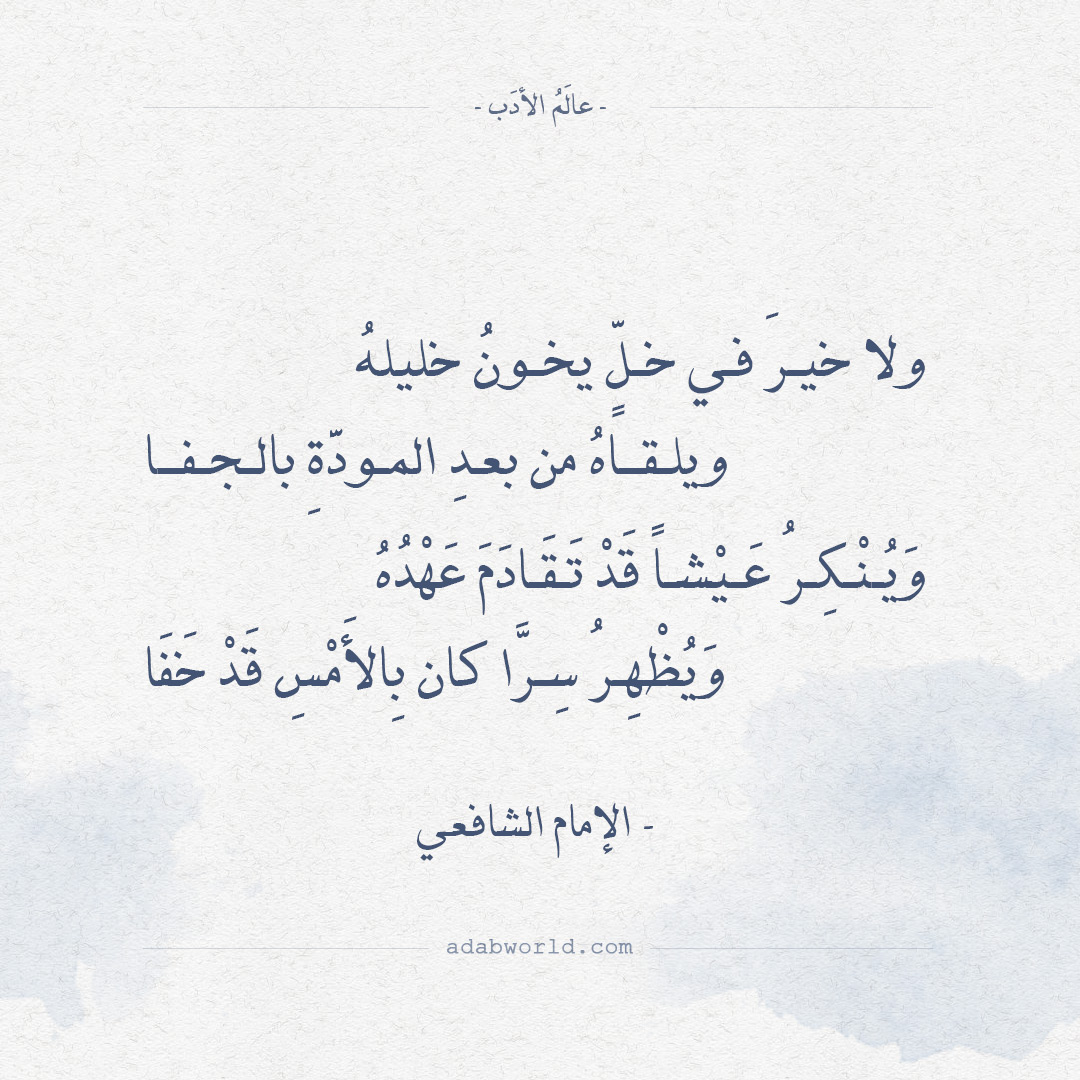 - عالَمُ الأدَب -
ولا خيـرَ فـي خـلّ يخـونُ خليلهُ
ويلـقــاهُ من بعـدِ المـودّةِ بالـجـفــا
وَيُـنْـكِـرُ عَـيْشـاً قَدْ تَـقَـادَمَ عَهْدُهُ
وَيُظْهِـرُ سِـرًّا كان بِالأَمْسِ قَدْ خَفَا
- الإمام الشافعي
adabworld.com